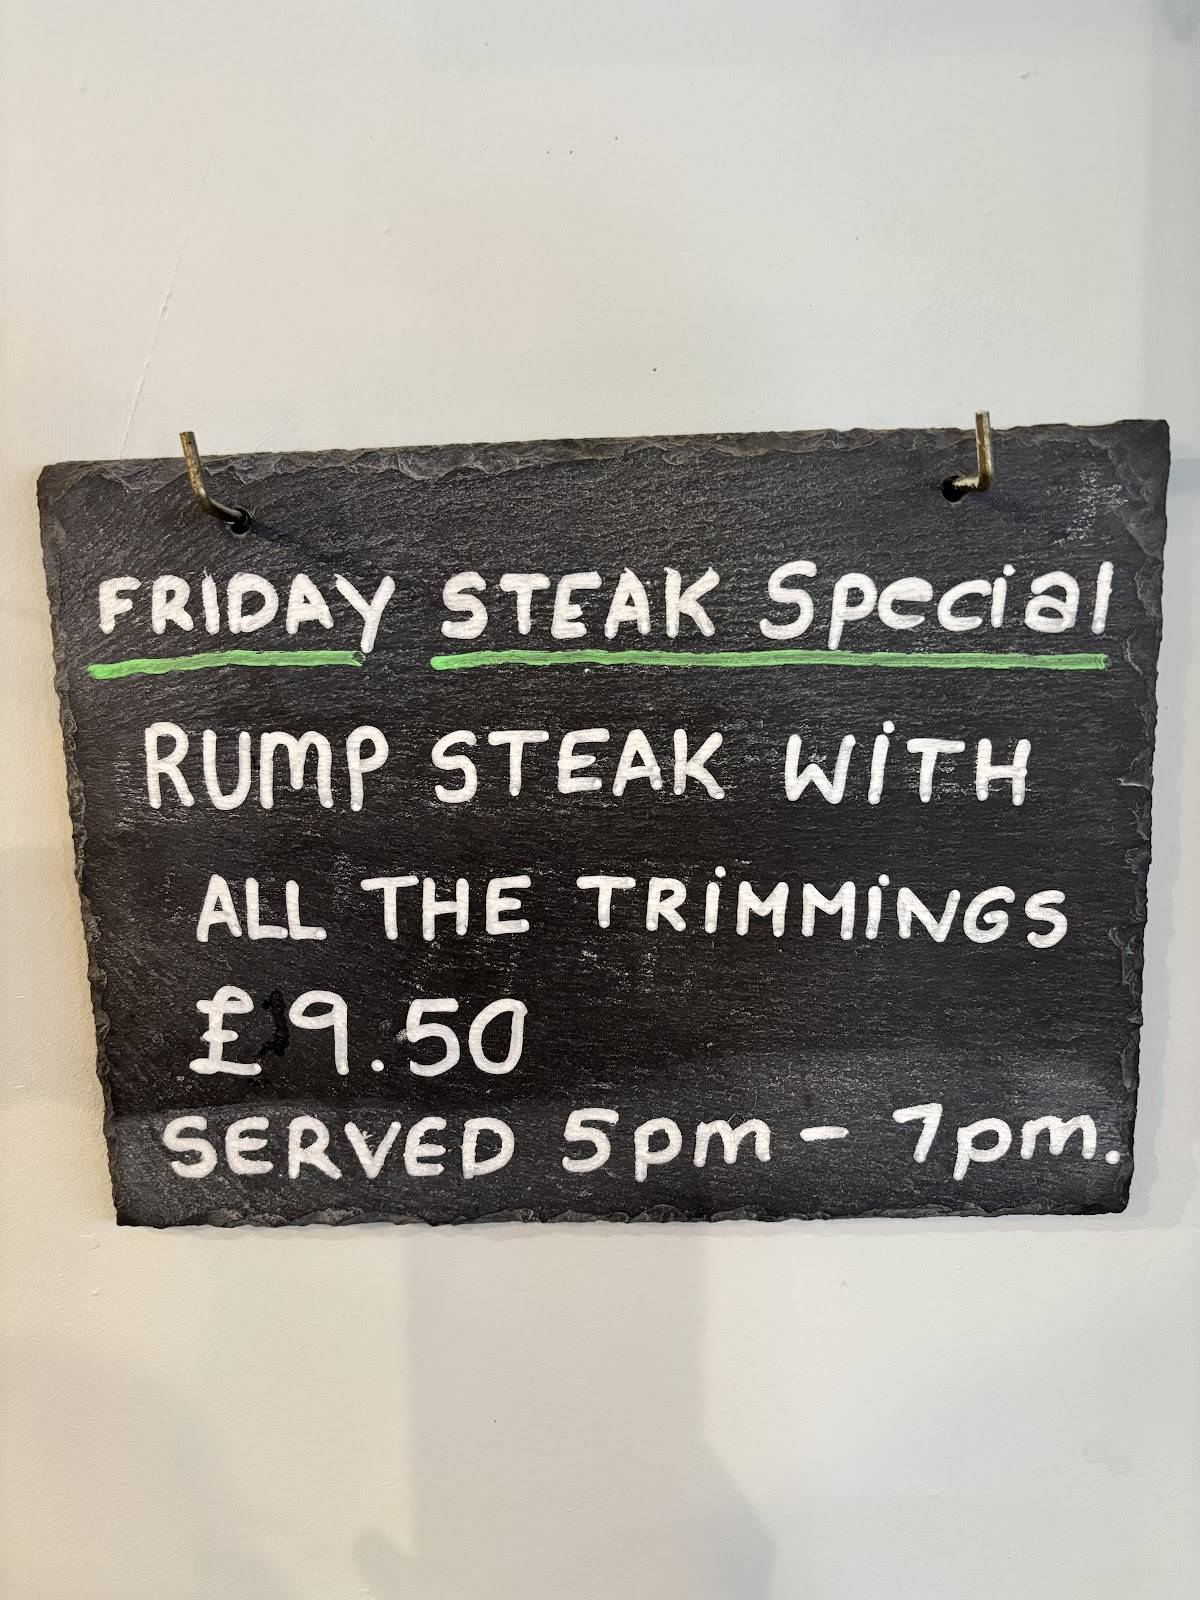 FRIDAY STEAK Special
RUMP STEAK WITH
ALL THE TRIMMINGS
£9.50
SERVED 5pm - 7pm.